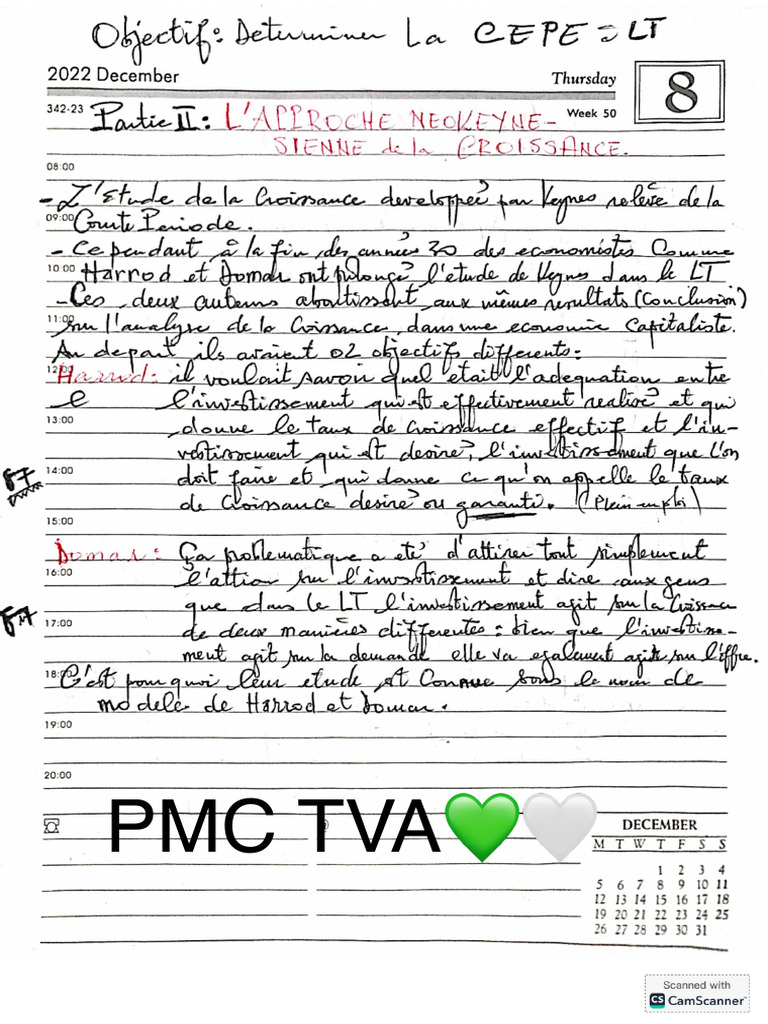 Objectif: Determiner La CEPE = LT
2022 December
Thursday
8
342-23
Week 50
Partie II: L'APPROCHE NEOKEYNE-
SIENNE de la CROISSANCE.
08:00
- L'étude de la Croissance developpée par Keynes relève de la
09:00
Courte Periode.
- Cependant à la fin des années 30 des economistes Comme
10:00
Harrod et Domar ont prolongé l'étude de Keynes dans le LT
- Ces deux auteurs aboutissent aux mêmes resultats (Conclusion)
11:00
sur l'analyse de la Croissance, dans une economie Capitaliste.
Au depart ils avaient 02 objectifs differents:
12:00
Harrod: il voulait savoir quel etait l'adequation entre
l'investissement qui est effectivement realisé et qui
13:00
donne le taux de Croissance effectif et l'in-
vestissement qui est desiré, l'investissement que l'on
14:00
doit faire et qui donne ce qu'on appelle le taux
de Croissance desiré ou garanti. (Plein emploi)
15:00
Domar: Ça problematique a eté d'attirer tout simplement
16:00
l'attion sur l'investissement et dire aux gens
que dans le LT l'investissement agit sur la Croissance
17:00
de deux manières differentes: bien que l'investisse-
ment agit sur la demande elle va egalement agir sur l'offre.
18:00
C'est pourquoi leur etude est Connue sous le nom de
modèle de Harrod et Domar.
19:00
20:00
PMC TVA💚🤍
DECEMBER
M T W T F S S
1 2 3 4
5 6 7 8 9 10 11
12 13 14 15 16 17 18
19 20 21 22 23 24 25
26 27 28 29 30 31
Scanned with
CS CamScanner